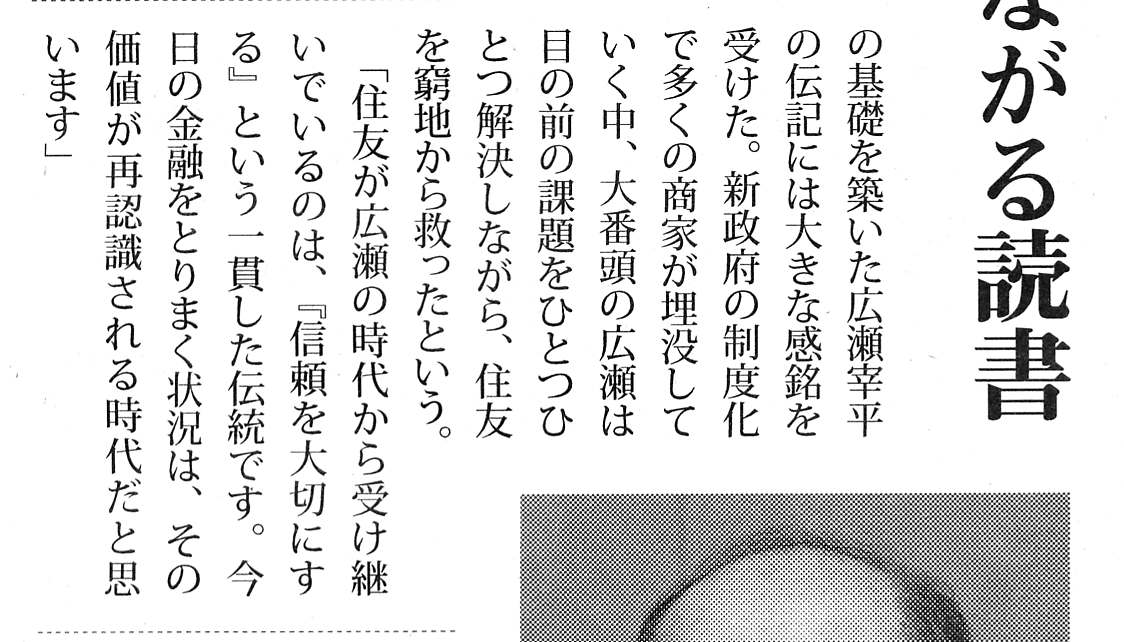 ながる読書
の基礎を築いた広瀬宰平
の伝記には大きな感銘を
受けた。新政府の制度化
で多くの商家が埋没して
いく中、大番頭の広瀬は
目の前の課題をひとつひ
とつ解決しながら、住友
を窮地から救ったという。
「住友が広瀬の時代から受け継
いでいるのは、『信頼を大切にす
る』という一貫した伝統です。今
日の金融をとりまく状況は、その
価値が再認識される時代だと思
います」